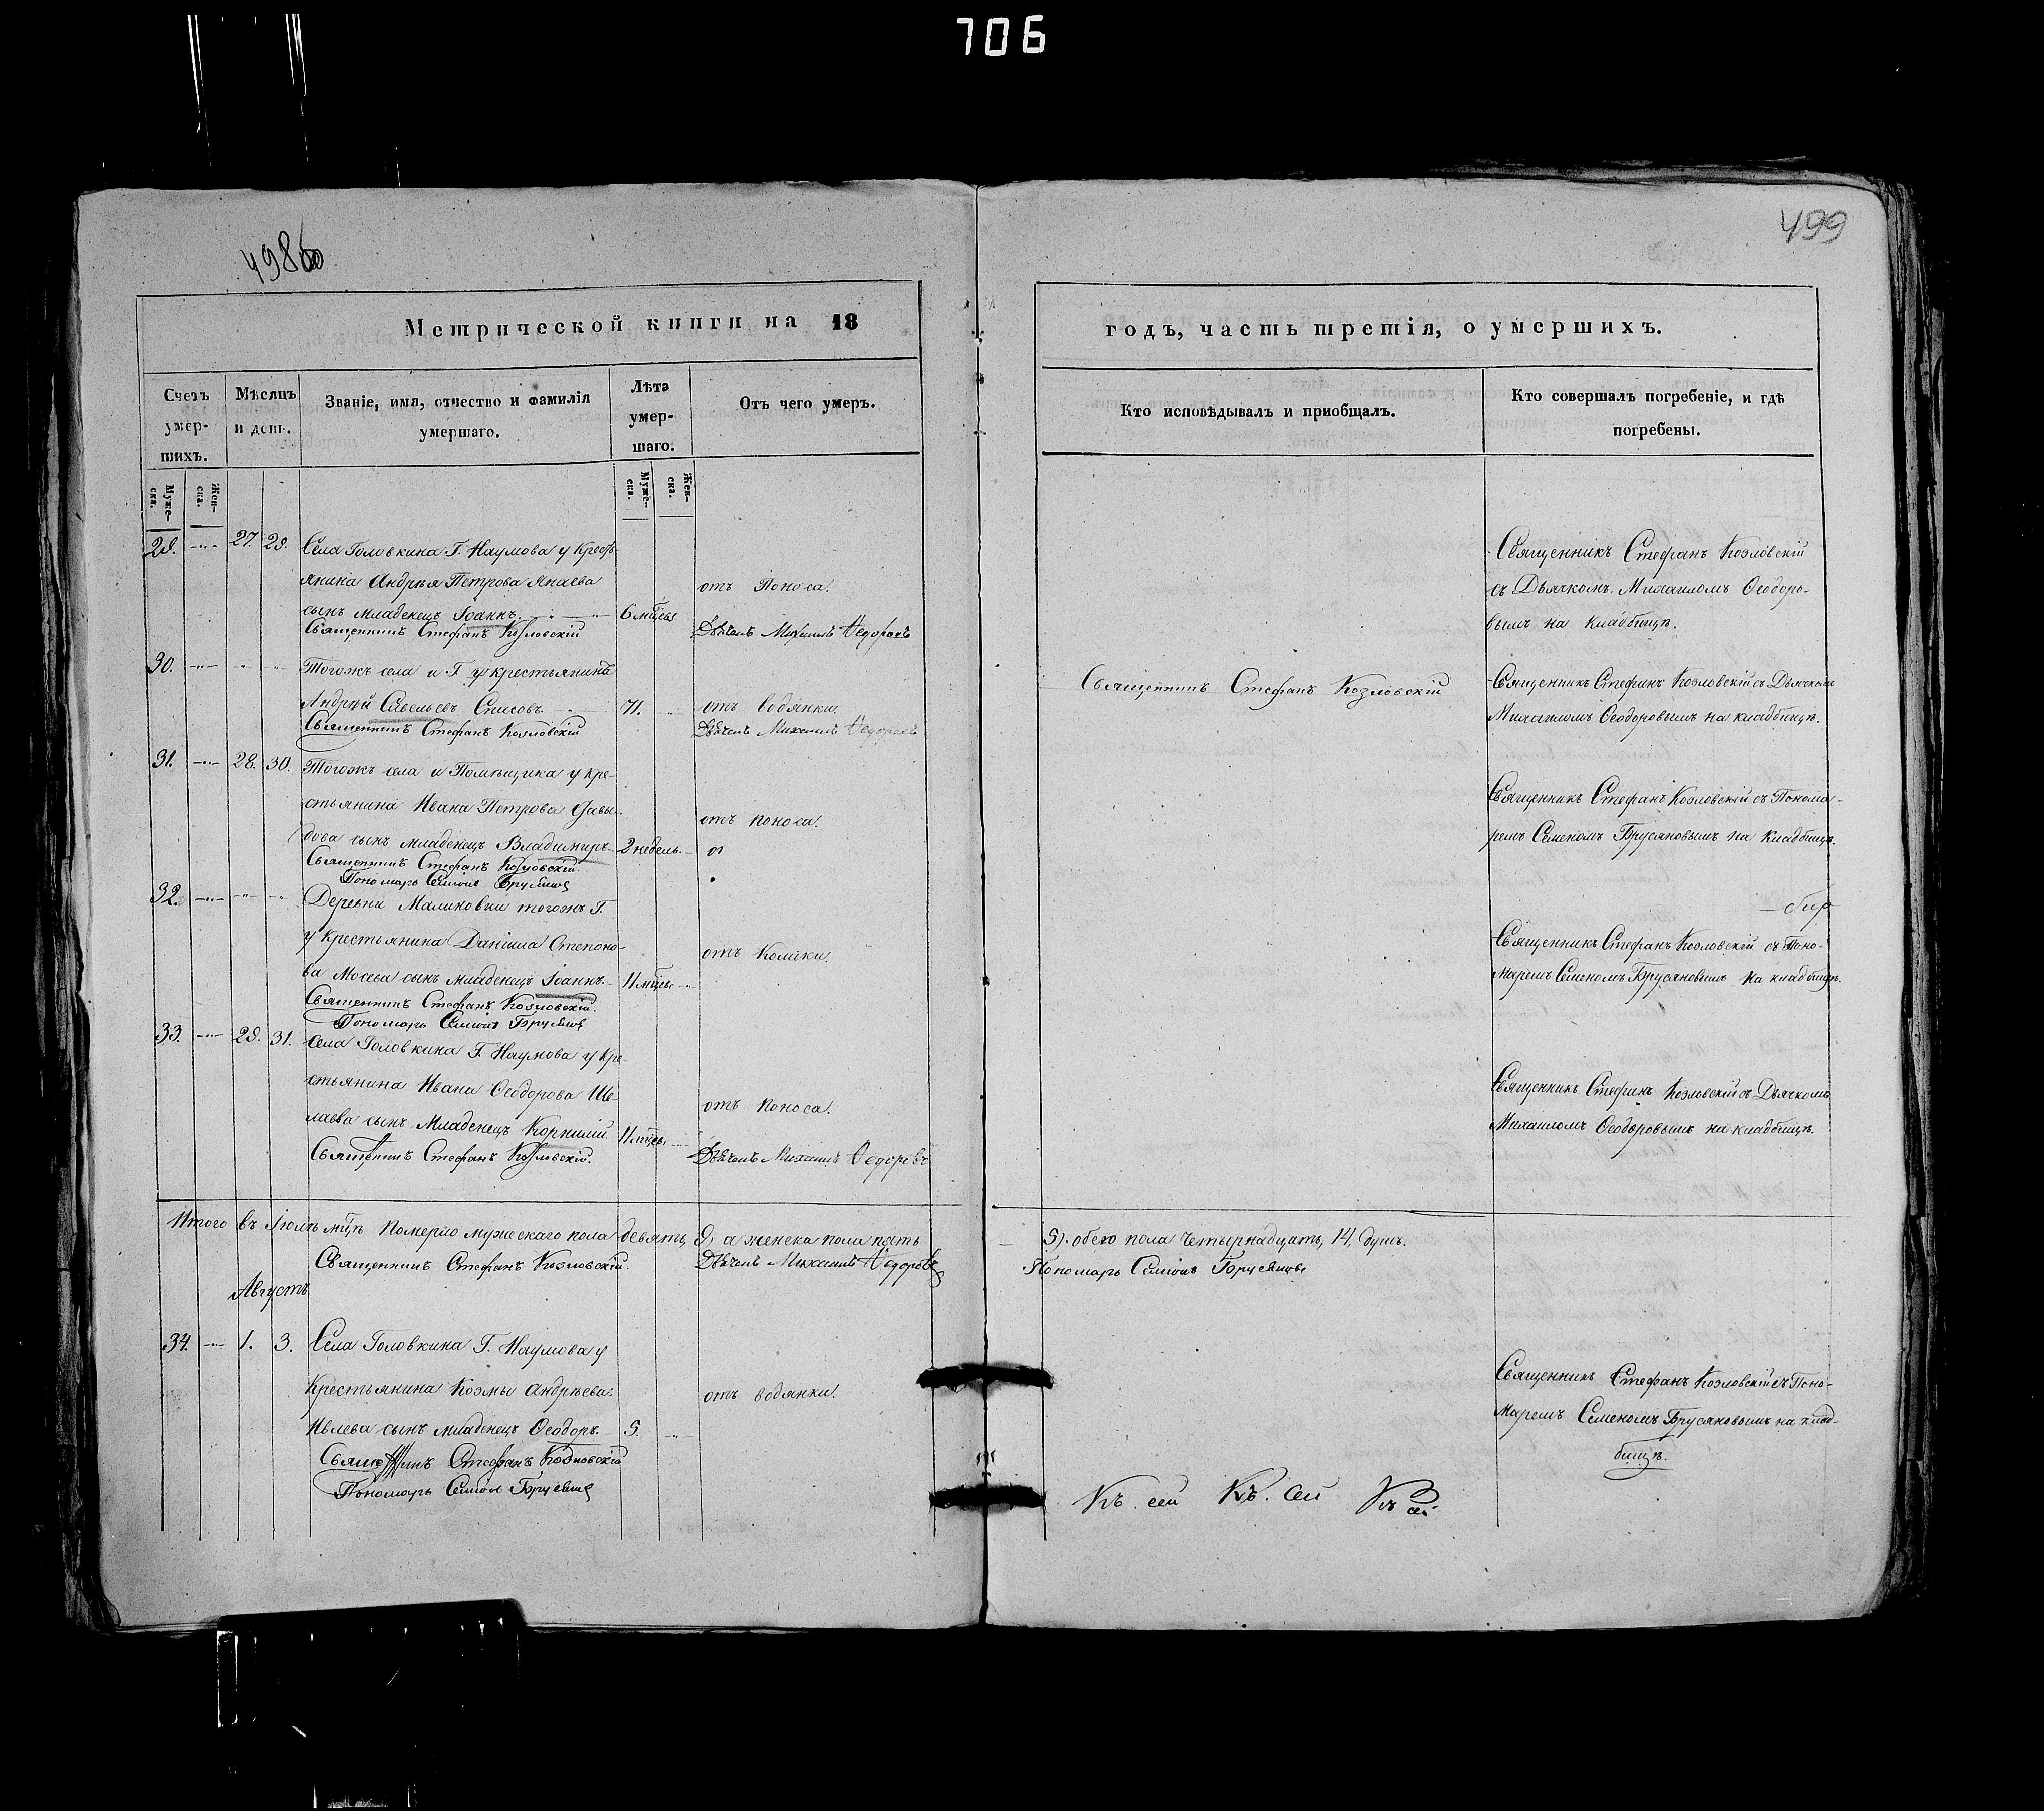 706
499
Метрической книги на 18
годъ, часть третія, о умершихъ.
Счетъ умер-
шихъ.
Мѣсяцъ
и день.
Званіе, имя, отчество и фамилія
умершаго.
Лѣта
умер-
шаго.
Отъ чего умеръ.
Кто исповѣдывалъ и пріобщалъ.
Кто совершалъ погребеніе, и гдѣ
погребены.
Муже-
ска.
Жен-
ска.
Муже-
ска.
Жен-
ска.
27. 29.
Села Головкина Г. Наумова у крестъ
янина Андрѣя Петрова Янаева
сынъ младенецъ Іоаннъ.
6 мѣсяцъ
отъ Поноса.
Священникъ Стефанъ Козловскій
Дьячекъ Михаилъ Ѳедоровъ
Священникъ Стефанъ Козловскій
съ Дьячкомъ Михаиломъ Ѳеодоро-
вымъ на кладбищѣ.
30.
Тогожъ села и Г. у крестьянинъ
Андрей Савельевъ
71.
отъ водянки.
Священникъ Стефанъ Козловскій
Дьячекъ Михаилъ Ѳедоровъ
Священникъ Стефанъ Козловскій
Священникъ Стефанъ Козловскій съ Дьячкомъ
Михаиломъ Ѳеодоровымъ на кладбищѣ.
31. 28. 30.
Тогожъ села и Помѣщика у кре-
стьянина Ивана Петрова Давы-
дова сынъ младенецъ Владимиръ
2 недель
отъ поноса.
Священникъ Стефанъ Козловскій
Пономарь
Священникъ Стефанъ Козловскій съ Понома-
ремъ Семеномъ Брусяновымъ на кладбищѣ.
32.
Деревни Малиновки тогожъ Г.
у крестьянина Даніила Степоно-
ва Мосева сынъ младенецъ Іоаннъ
11 мцъ
отъ Колики.
Священникъ Стефанъ Козловскій.
Пономарь
Священникъ Стефанъ Козловскій съ Поно-
маремъ Семеномъ Брусяновымъ на кладбищѣ.
33. 29. 31.
Села Головкина Г. Наумова у кре-
стьянина Ивана Ѳеодорова Ше-
лаева сынъ Младенецъ Корнилій
11 мцъ
отъ поноса.
Священникъ Стефанъ Козловскій.
Дьячекъ Михаилъ Ѳедоровъ
Священникъ Стефанъ Козловскій съ Дьячкомъ
Михаиломъ Ѳеодоровымъ на кладбищѣ.
Итого въ Іюлѣ мцѣ померло мужескаго пола девять, 9, а женска пола пять
5). обего пола четырнадцать, 14, душъ.
Священникъ Стефанъ Козловскій.
Дьячекъ Михаилъ Ѳедоровъ
Пономарь
Августъ
34. 1. 3.
Села Головкина Г. Наумова у
Крестьянина Козмы Андрѣева
Ивлева сынъ младенецъ Ѳеодоръ
5.
отъ водянки.
Стефанъ Козловскій
Пономарь
Священникъ Стефанъ Козловскій съ Поно-
маремъ Семеномъ Брусяновымъ на клад-
бищѣ.
Къ. сей Къ. сей Къ сей